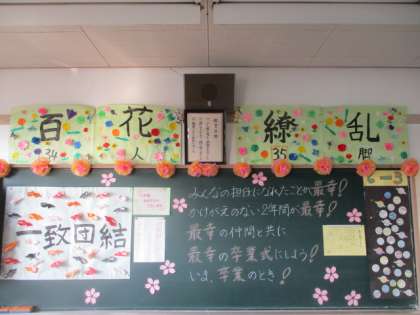 百花繚乱
34人
35脚
一致団結
みんなの担任になれたことが最幸!
かけがえのない2年間が最幸!
最幸の仲間と共に
最幸の卒業式にしよう!
いま、卒業のとき!
6-3